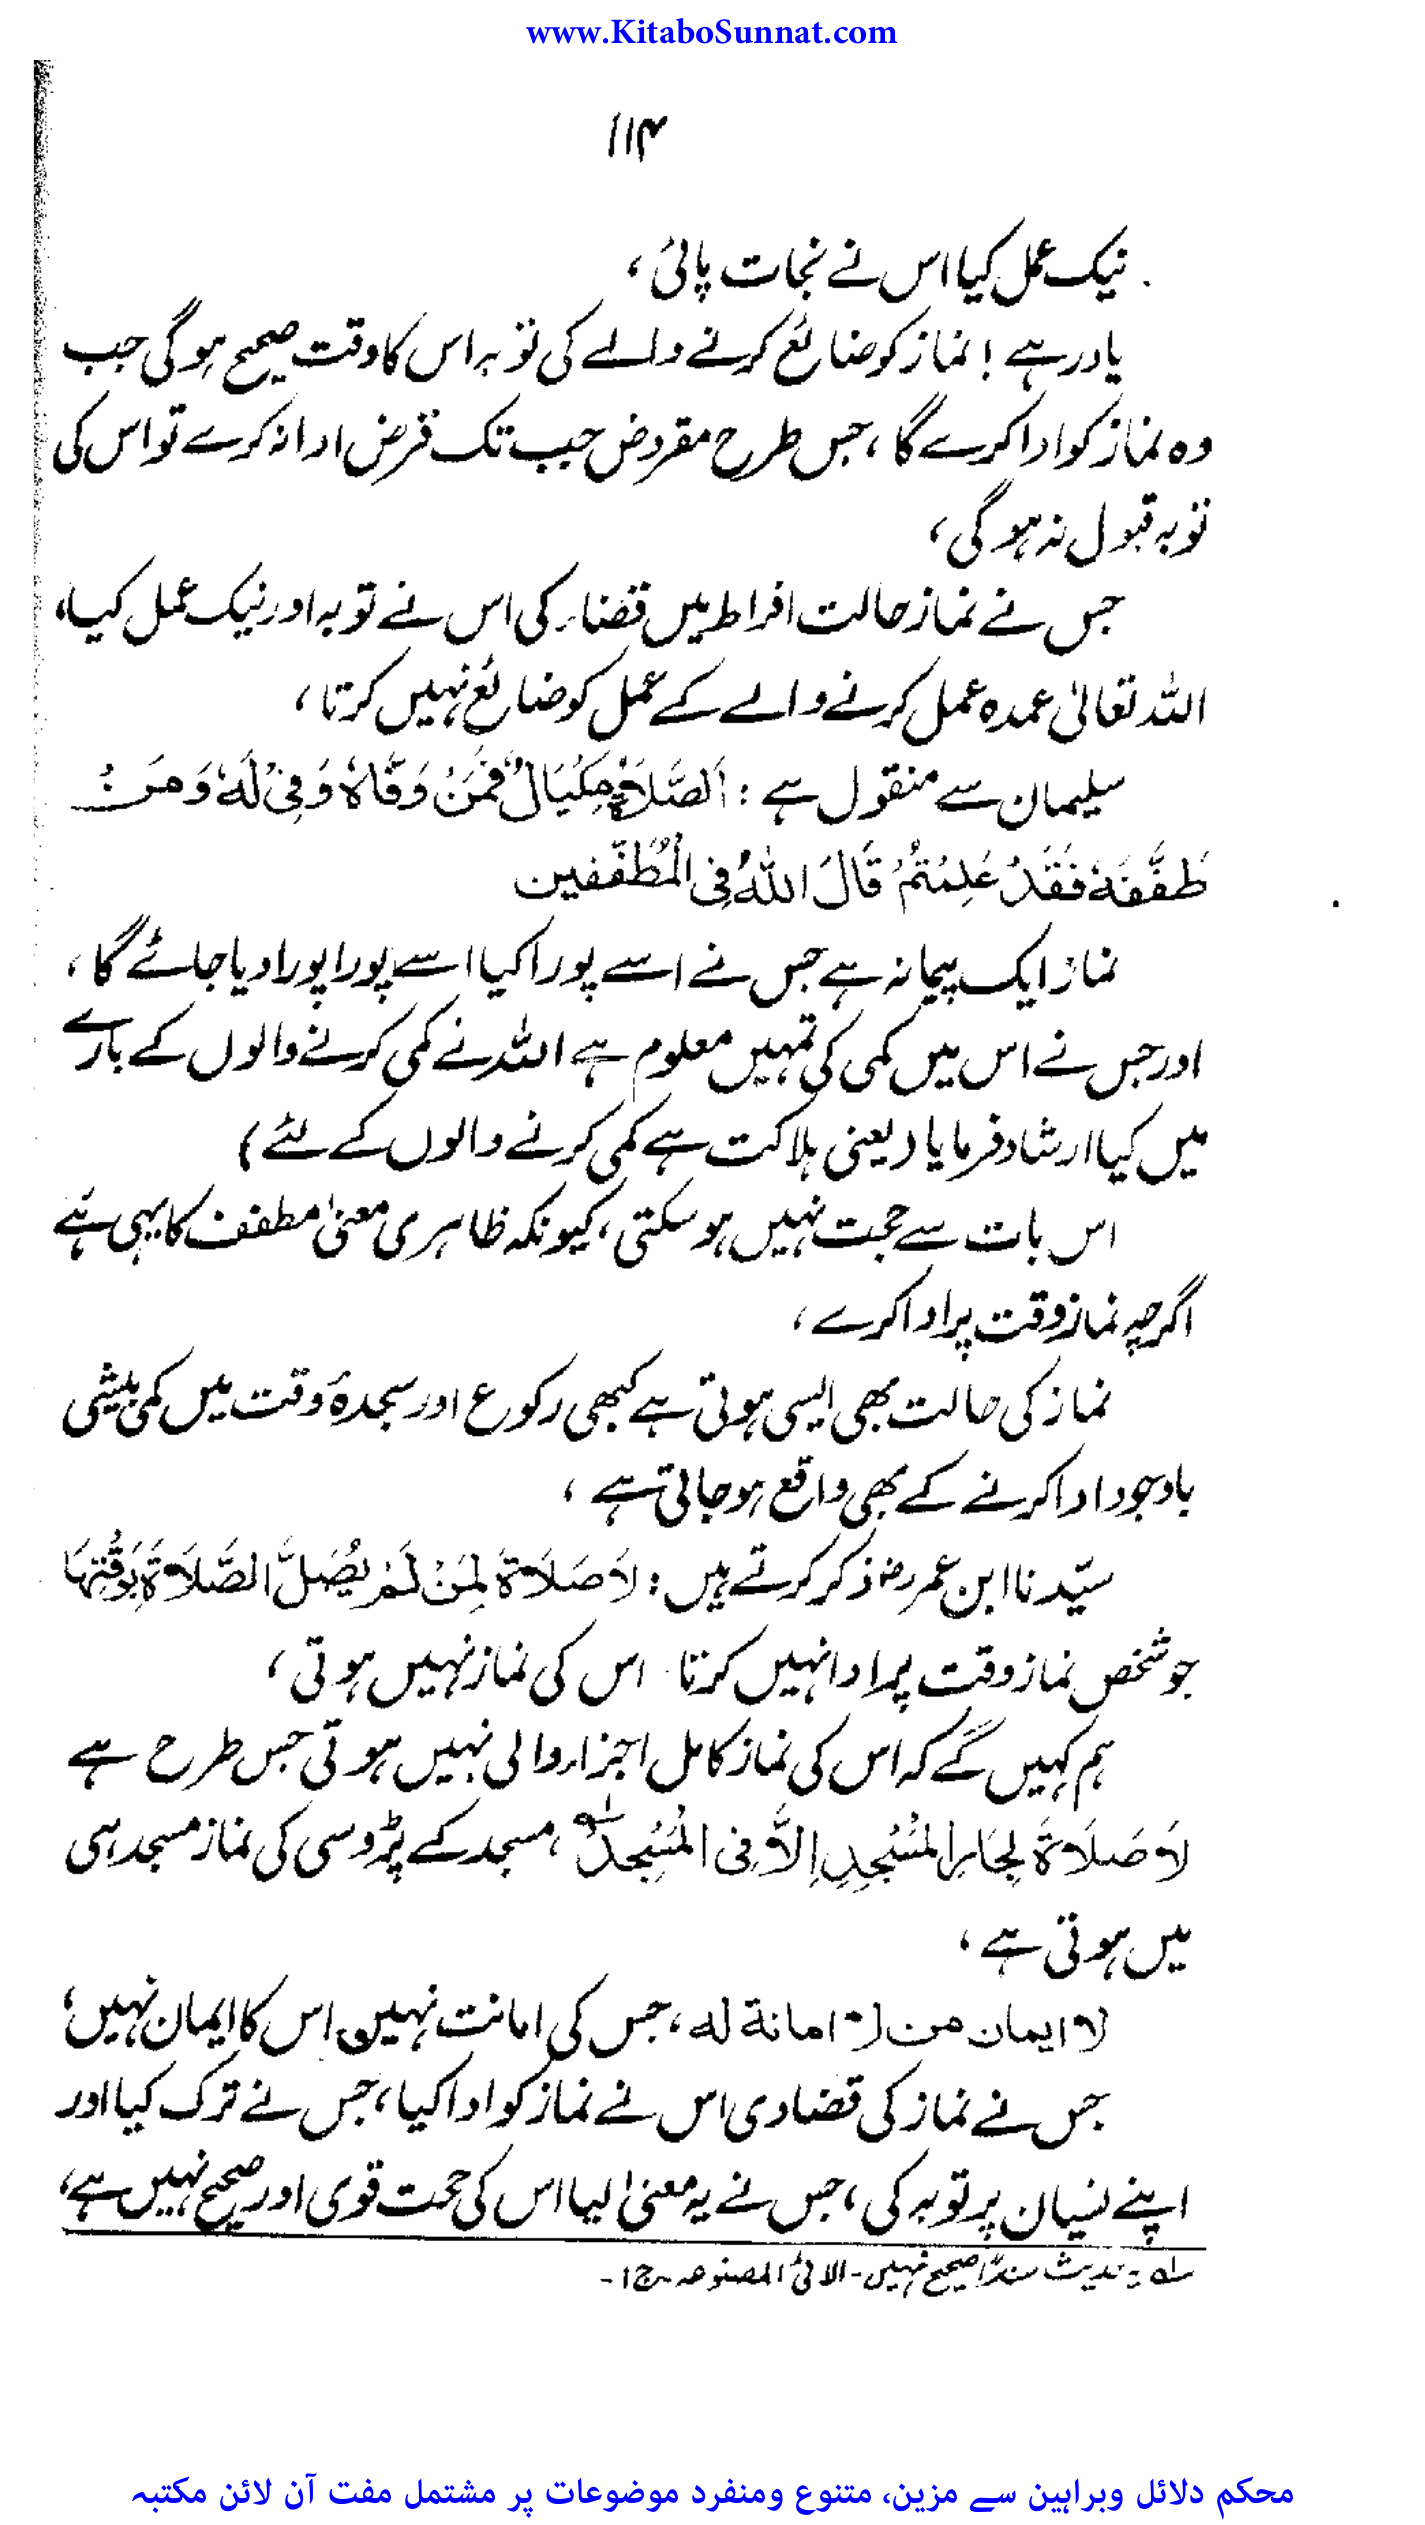 www.KitaboSunnat.com
۱۱۴
نیک عمل کیا اس نے نجات پائی،
یاد رہے! نماز کو ضائع کرنے والے کی توبہ اس کا وقت صحیح ہوگی جب
وہ نماز کو ادا کرے گا، جس طرح مقروض جب تک قرض ادا نہ کرے تو اس کی
توبہ قبول نہ ہوگی،
جس نے نماز حالت افراط میں قضاء کی اس نے توبہ اور نیک عمل کیا،
اللہ تعالیٰ عمدہ عمل کرنے والے کے عمل کو ضائع نہیں کرتا،
سلیمان سے منقول ہے : اَلصَّلَاةُ مِكْيَالٌ فَمَنْ وَفَّاهُ وَفِیْ لَهٗ وَمَنْ
طَفَّفَهٗ فَقَدْ عَلِمْتُمْ قَالَ اللّٰهُ فِی الْمُطَفِّفِين
نماز ایک پیمانہ ہے جس نے اسے پورا کیا اسے پورا پورا دیا جائے گا،
اور جس نے اس میں کمی کی تمہیں معلوم ہے اللہ نے کمی کرنے والوں کے بارے
میں کیا ارشاد فرمایا (یعنی ہلاکت ہے کمی کرنے والوں کے لئے)
اس بات سے حجت نہیں ہو سکتی، کیونکہ ظاہری معنیٰ مطفف کا یہی ہے
اگرچہ نماز وقت پر ادا کرے،
نماز کی حالت بھی ایسی ہوتی ہے کبھی رکوع اور سجدۂ وقت میں کمی بیشی
باوجود ادا کرنے کے بھی واقع ہو جاتی ہے،
سیّدنا ابن عمر رضؓ ذکر کرتے ہیں : لَا صَلَاةَ لِمَنْ لَمْ يُصَلِّ الصَّلَاةَ بِوَقْتِهَا
جو شخص نماز وقت پر ادا نہیں کرتا اس کی نماز نہیں ہوتی،
ہم کہیں گے کہ اس کی نماز کامل اجزاء والی نہیں ہوتی جس طرح ہے
لَا صَلَاةَ لِجَارِ الْمَسْجِدِ اِلَّا فِی الْمَسْجِدِ ؎۱، مسجد کے پڑوسی کی نماز مسجد ہی
میں ہوتی ہے،
لا ایمان من لا امانة له، جس کی امانت نہیں اس کا ایمان نہیں،
جس نے نماز کی قضا دی اس نے نماز کو ادا کیا، جس نے ترک کیا اور
اپنے نسیان پر توبہ کی، جس نے یہ معنیٰ لیا اس کی حجت قوی اور صحیح نہیں ہے،
؎۱ : حدیث سنداً صحیح نہیں۔ الالئ المصنوعہ ج۱۔
محکم دلائل وبراہین سے مزین، متنوع ومنفرد موضوعات پر مشتمل مفت آن لائن مکتبہ